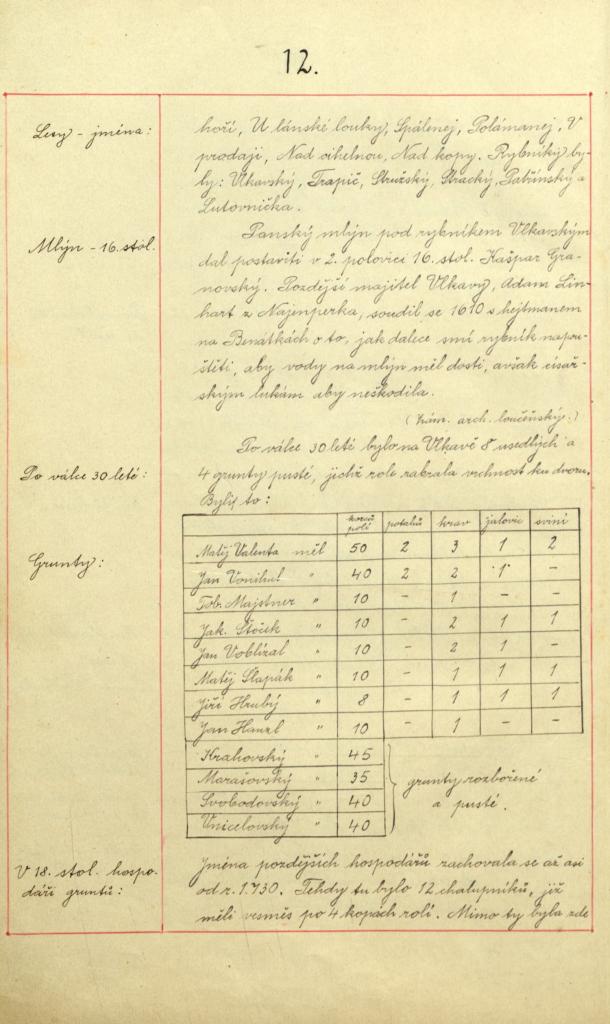 12.
Lesy - jména:
hoří, U lánské louky, Spálenej, Polámanej, V
prodaji, Nad cihelnou, Nad kopy. Rybníky by-
ly: Vlkavský, Trapič, Stružský, Stracký, Patřínský a
Lutovnička.
Mlýn - 16. stol.
Panský mlýn pod rybníkem Vlkavským
dal postaviti v 2. polovici 16. stol. Kašpar Gra-
novský. Pozdější majitel Vlkavy, Adam Lin-
hart z Najenperka, soudil se 1610 s hejtmanem
na Benátkách o to, jak dalece smí rybník napou-
štěti, aby vody na mlýn měl dosti, avšak císař-
ským lukám aby neškodila.
(Zám. arch. loučeňský.)
Po válce 30leté:
Po válce 30leté bylo na Vlkavě 8 usedlých a
4 grunty pusté, jichž role zabrala vrchnost ku dvoru.
Byli to:
Grunty:
korců polí potahů krav jalovic sviní
Matěj Valenta měl 50 2 3 1 2
Jan Vonihal " 40 2 2 1 -
Tob. Majstner " 10 - 1 - -
Jak. Stöcek " 10 - 2 1 1
Jan Voblízal " 10 - 2 1 -
Matěj Šlapák " 10 - 1 1 1
Jiří Hrubý " 8 - 1 1 1
Jan Hanzl " 10 - 1 - -
Krahovský " 45
Marašovský " 35
Svobodovský " 40
Vnicelovský " 40
grunty rozbořené
a pusté.
V 18. stol. hospo-
dáři gruntů:
Jména pozdějších hospodářů zachovala se až asi
od r. 1730. Tehdy tu bylo 12 chalupníků, již
měli vesměs po 4 kopách rolí. Mimo ty byla zde